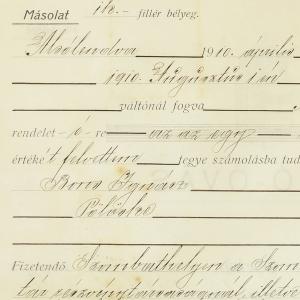 Másolat ite. fillér bélyeg.
Alsólendva 1910. április
1910. Augusztus 1 én
váltónál fogva
rendelet - ő - re az az egy
értékét felvettem tegye számolásba tud
Boros Ignácz
Pölöske
Fizetendő Szombathelyen a Szom
táj részvénytársaságnál, illetve